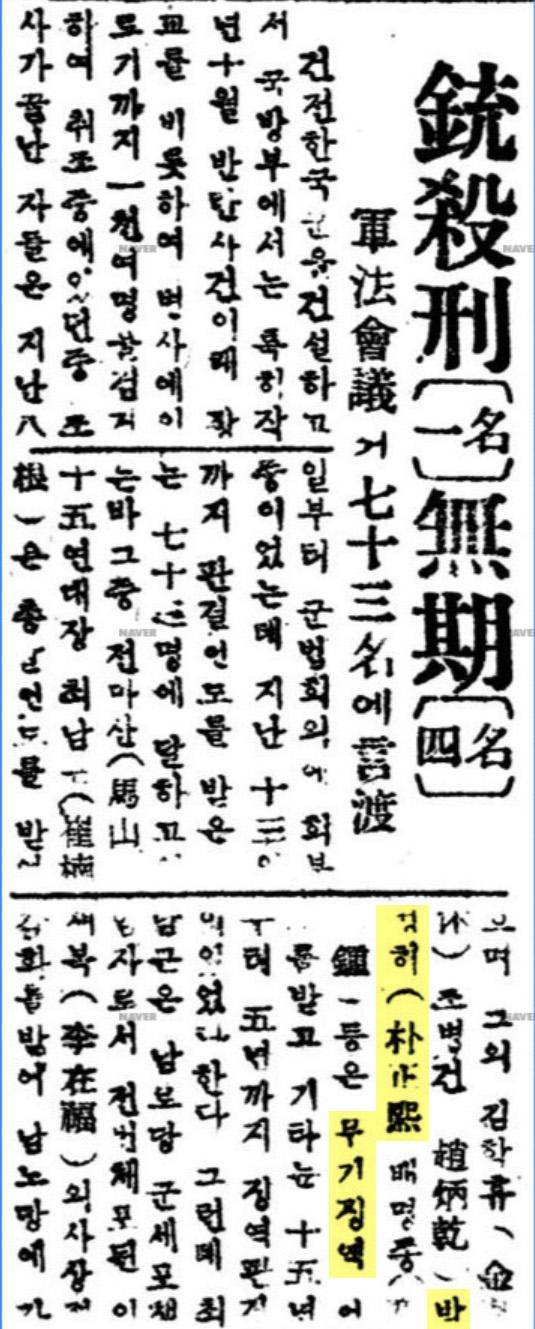 銃殺刑[一名]無期[四名]
軍法會議서 七十三名에 言渡
건전한국군을건설하고
서 국방부에서는 특히작
년十월 반란사건이래 장
교를 비롯하여 병사에이
르기까지 一천여명을검거
하여 취조중에있던중 조
사가끝난 자들은 지난八
일부터 군법회의에 회부
중이었는데 지난 十三일
까지 판결언도를 받은
는 七十三명에 달하고
는바그중 전마산(馬山
十五연대장 최남근(崔楠
根)은 총살언도를 받았
으며 그외 김학림(金
林) 조병건(趙炳乾) 박
정희(朴正熙) 배명종(
鍾)등은 무기징역 어
를받고 기타는 十五년
부터 五년까지 징역판결
이있었다한다 그런데 최
남근은 남로당 군세포책
임자로서 전번체포된 이
재복(李在福)의사상적
감화를받어 남노당에 가
NAVER
NAVER
NAVER
NAVER
NAVER
NAVER